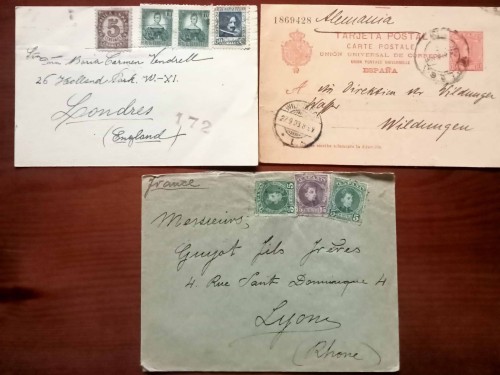 5
Srta. Maria Carmen Vendrell
26 Holland Park. W-XI.
Londres
(England)
172
1869428
Alemania
TARJETA POSTAL
CARTE POSTALE
UNIÓN UNIVERSAL DE CORREOS
ESPAÑA
A die Direktion der Wildunger
Wildungen
France
5
15
5
Messieurs,
Guyot fils Frères
4 Rue Saint Dominique 4
Lyon
(Rhône)